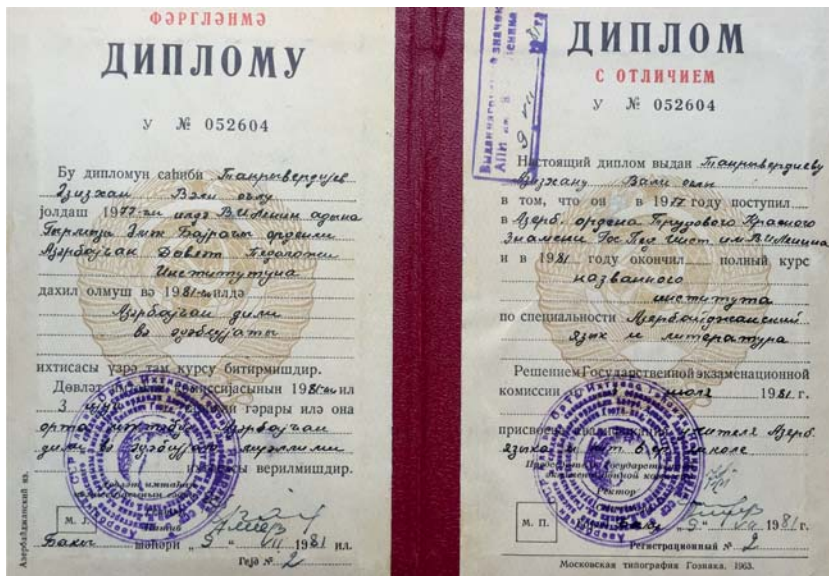 ФӘРГЛӘНМӘ
ДИПЛОМУ
У № 052604
Бу дипломун саһиби Танрывердијев
Әзизхан Вәли оғлу
јолдаш 1977-ҹи илдә В.И.Ленин адына
Гырмызы Әмәк Бајрағы орденли
Азәрбајҹан Дөвләт Педагожи
Институтуна
дахил олмуш вә 1981-ҹи илдә
Азәрбајҹан дили
вә әдәбијјаты
ихтисасы үзрә там курсу битирмишдир.
Дөвләт комиссијасынын 1981-ҹи ил
3 гәрары илә она
орта мәктәбдә Азәрбајҹан
дили вә әдәбијјат мүәллими
верилмишдир.
М. Ј.
Бакы шәһәри „9“ VII 1981 ил.
Гејд № 2
Азербайджанский яз.
ДИПЛОМ
С ОТЛИЧИЕМ
У № 052604
Настоящий диплом выдан Танрывердиеву
Азизхану Вали оглы
в том, что он в 1977 году поступил
в Азерб. ордена Трудового Красного
Знамени Гос Пед Инст. им В И Ленина
и в 1981 году окончил полный курс
названного
института
по специальности Азербайджанский
язык и литература
Решением Государственной экзаменационной
комиссии от июля 1981 г.
присвоена квалификация учителя Азерб.
языка и лит. в школе
Председатель Государственной
экзаменационной комиссии
Ректор
М. П.
„9“ VII 1981 г.
Регистрационный № 2
Московская типография Гознака. 1963.